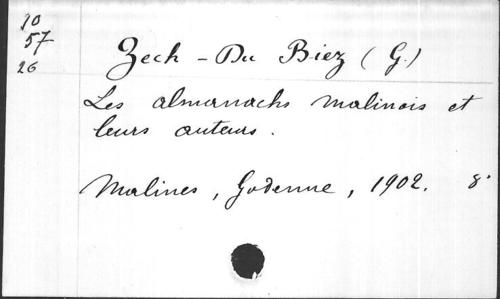 10
57
26
Zech - Du Biez (G.)
Les almanachs malinois et
leurs auteurs.
Malines, Godenne, 1902. 8°